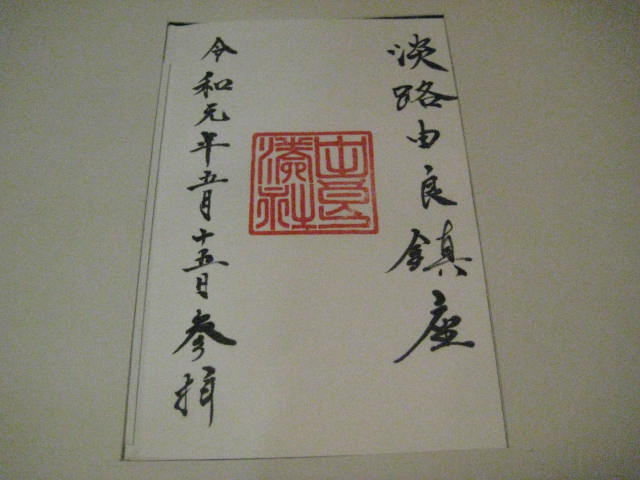 淡路由良鎮座
由良湊神社
令和元年五月十五日参拝